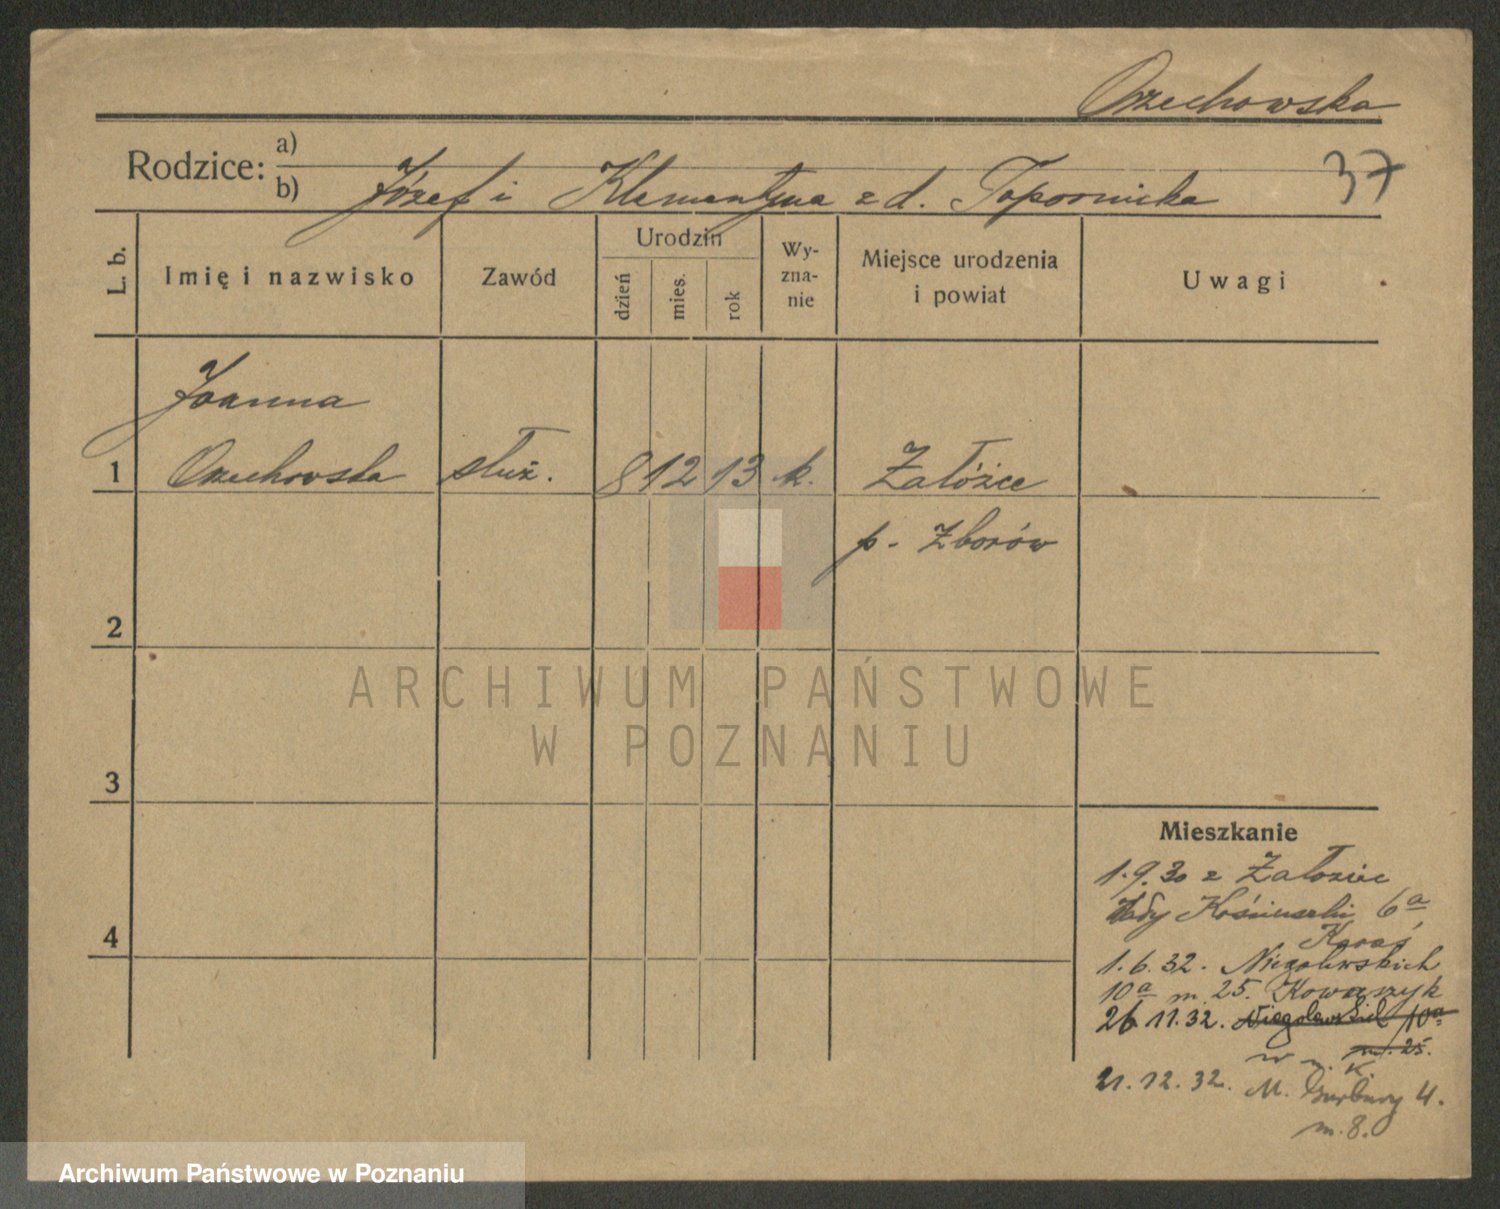 Orzechowska
Rodzice: a)
b) Józef i Klementyna z d. Topornicka 37
L. b. Imię i nazwisko Zawód Urodzin dzień mies. rok Wy-zna-nie Miejsce urodzenia i powiat Uwagi
Joanna
1 Orzechowska służ. 8 12 13 k. Załóźce
p. Zborów
2
ARCHIWUM PAŃSTWOWE
W POZNANIU
3
Mieszkanie
1.9.30 z Załoziec
Kościuszki 6a
4
1.6.32. Niegolewskich
10a m. 25. Kowarzyk
26 11.32. Niegolewskich 10a
m. 25.
21.12.32. M. Garbary 4.
m. 8.
Archiwum Państwowe w Poznaniu